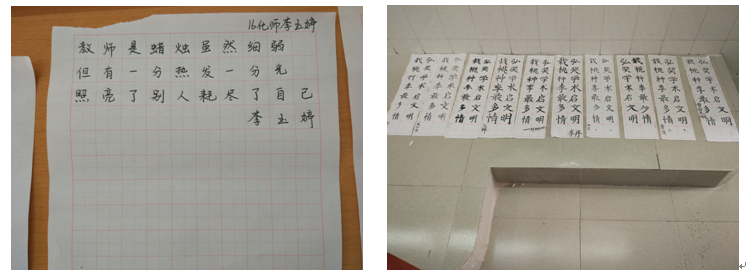 16化师李玉婷
教师是蜡烛虽然细弱
但有一分热发一分光
照亮了别人耗尽了自己
李玉婷
弘奖学术启文明
栽桃种李最多情
弘奖学术启文明
栽桃种李最多情
弘奖学术启文明
栽桃种李最多情
弘奖学术启文明
栽桃种李最多情
李丹
弘奖学术启文明
栽桃种李最多情
弘奖学术启文明
栽桃种李最多情
弘奖学术启文明
栽桃种李最多情
弘奖学术启文明
栽桃种李最多情
弘奖学术启文明
栽桃种李最多情
弘奖学术启文明
栽桃种李最多情